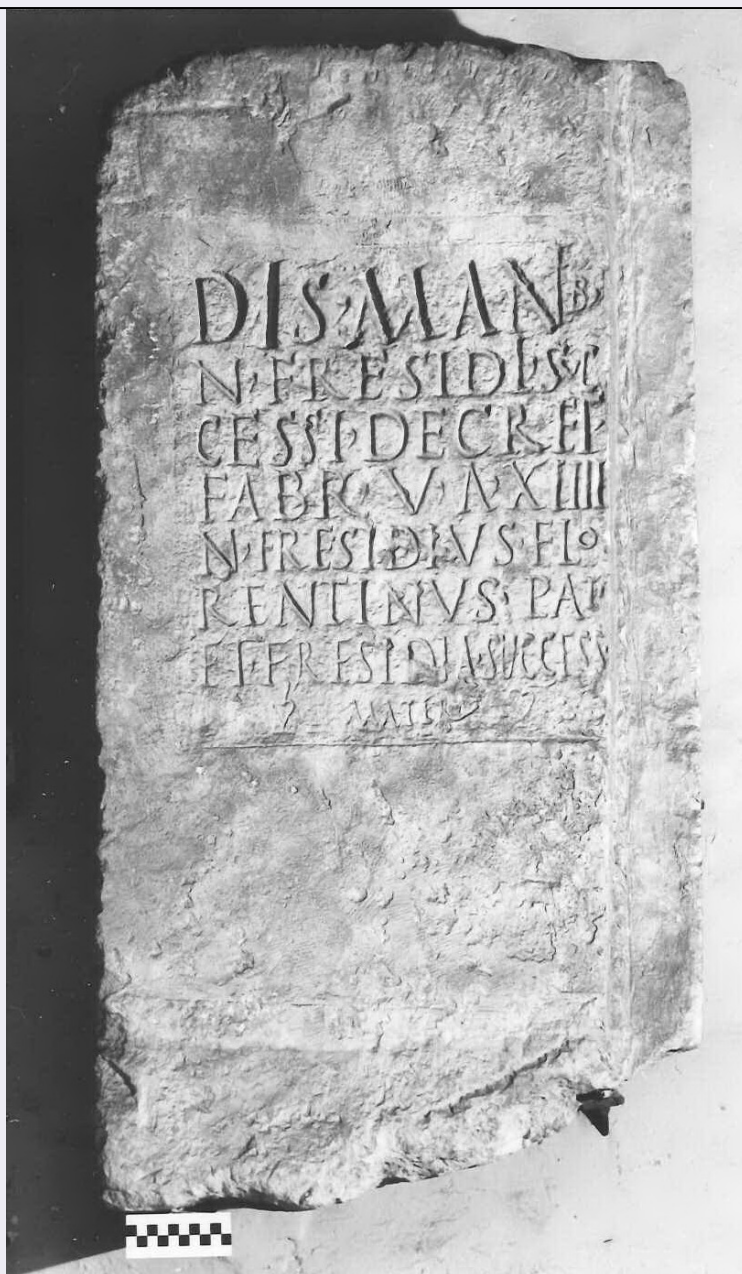 DIS·MANIB
N·FRESIDI·SVC
CESSI·DECRET
FABR·V·A·XIIII
N·FRESIDIVS·FLO
RENTINVS·PAT
ET·FRESIDIA·SVCCESS
MATER